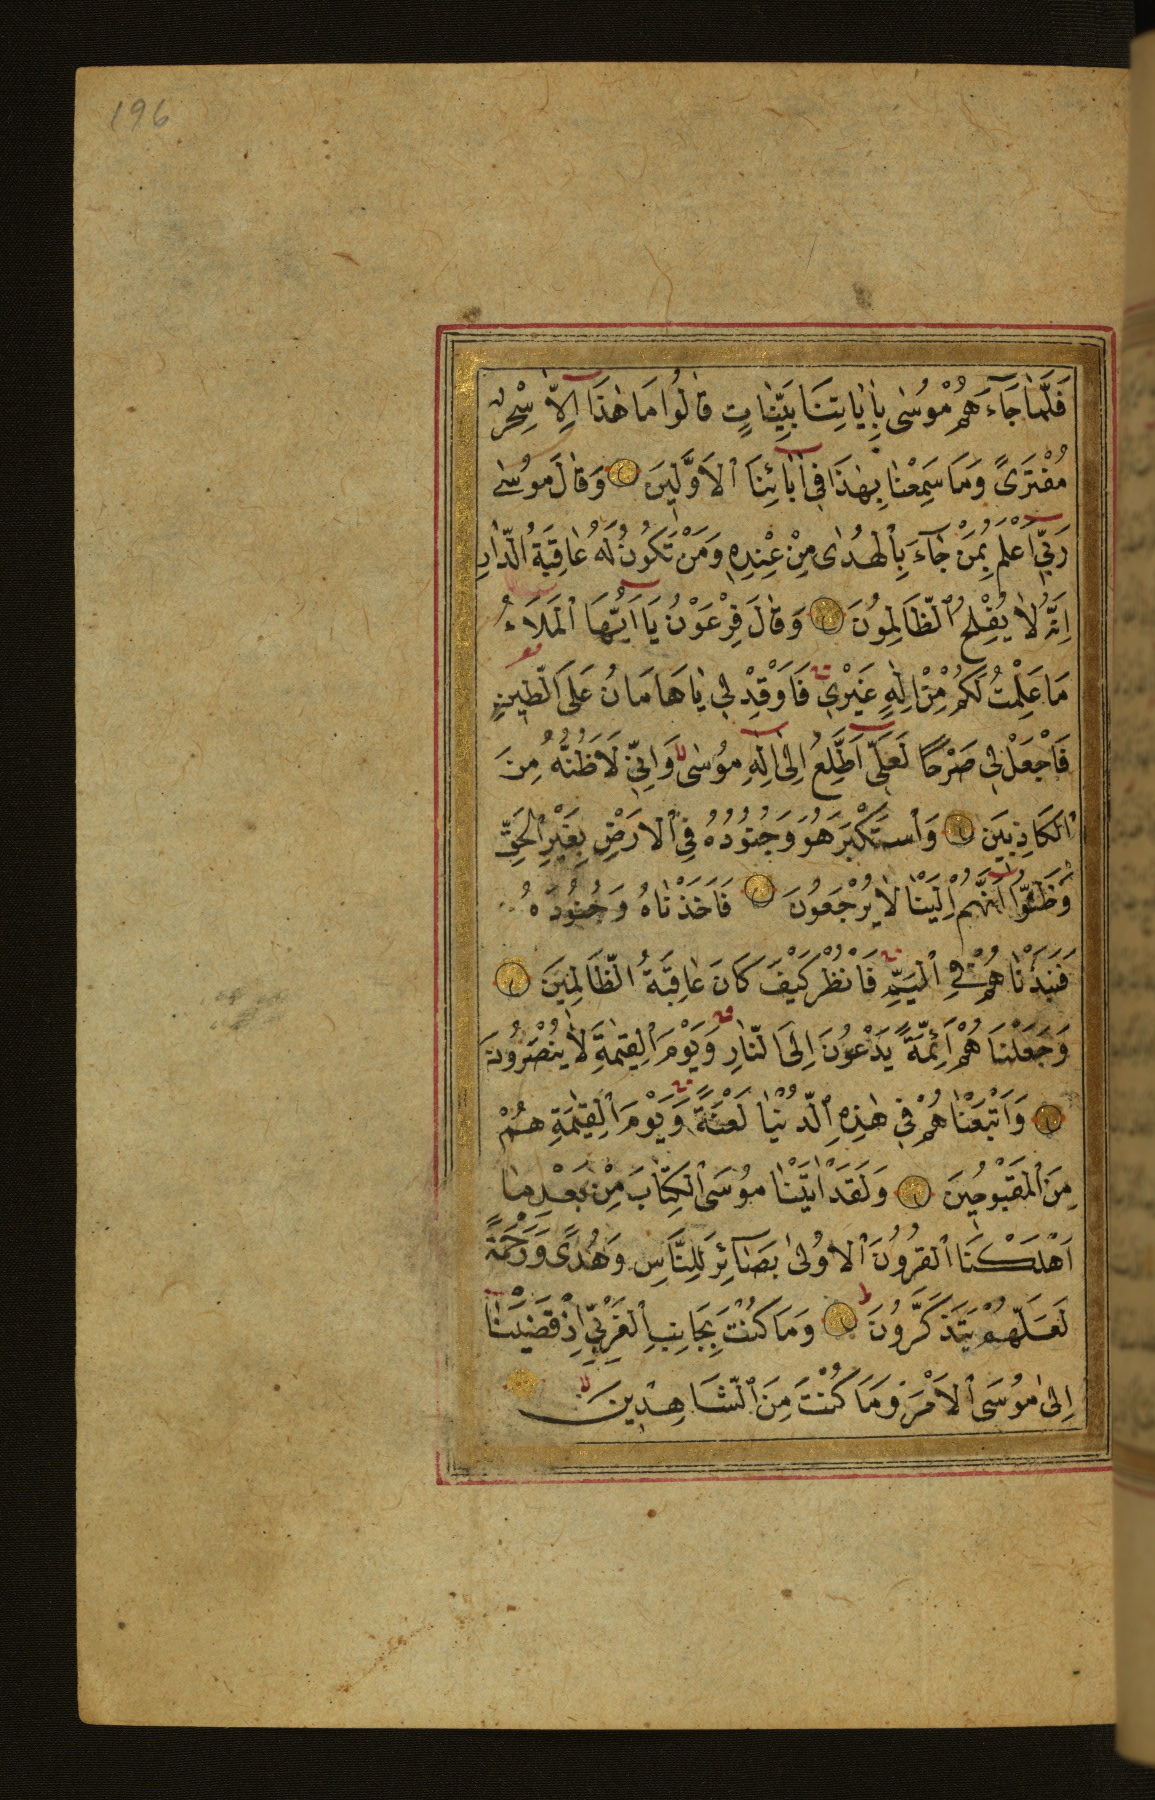 196
فَلَمَّا جَآءَ هُمْ مُوسٰى بِاٰيَاتِنَا بَيِّنَاتٍ قَالُوا مَا هٰذَا اِلَّا سِحْرٌ
مُفْتَرًى وَمَا سَمِعْنَا بِهٰذَا فِي اٰبَائِنَا ٱلْاَوَّلِينَ وَقَالَ مُوسٰى
رَبِّي اَعْلَمُ بِمَنْ جَآءَ بِٱلْهُدٰى مِنْ عِنْدِهِ وَمَنْ تَكُونُ لَهُ عَاقِبَةُ الدَّارِ
اِنَّهُ لَا يُفْلِحُ ٱلظَّالِمُونَ وَقَالَ فِرْعَوْنُ يَا اَيُّهَا ٱلْمَلَاءُ
مَا عَلِمْتُ لَكُمْ مِنْ اِلٰهٍ غَيْرِي فَاَوْقِدْ لِي يَا هَامَانُ عَلَى الطِّينِ
فَاجْعَلْ لِي صَرْحًا لَعَلِّي اَطَّلِعُ اِلٰى اِلٰهِ مُوسٰى وَاِنِّي لَاَظُنُّهُ مِنَ
ٱلْكَاذِبِينَ وَٱسْتَكْبَرَ هُوَ وَجُنُودُهُ فِي ٱلْاَرْضِ بِغَيْرِ ٱلْحَقِّ
وَظَنُّوا اَنَّهُمْ اِلَيْنَا لَا يُرْجَعُونَ فَاَخَذْنَاهُ وَجُنُودَهُ
فَنَبَذْنَا هُمْ فِي ٱلْيَمِّ فَانْظُرْ كَيْفَ كَانَ عَاقِبَةُ الظَّالِمِينَ
وَجَعَلْنَا هُمْ اَئِمَّةً يَدْعُونَ اِلَى النَّارِ وَيَوْمَ ٱلْقِيٰمَةِ لَا يُنْصَرُونَ
وَاَتْبَعْنَا هُمْ فِي هٰذِهِ ٱلدُّنْيَا لَعْنَةً وَيَوْمَ ٱلْقِيٰمَةِ هُمْ
مِنَ ٱلْمَقْبُوحِينَ وَلَقَدْ اٰتَيْنَا مُوسَى ٱلْكِتَابَ مِنْ بَعْدِ مَا
اَهْلَكْنَا ٱلْقُرُونَ ٱلْاُولٰى بَصَآئِرَ لِلنَّاسِ وَهُدًى وَرَحْمَةً
لَعَلَّهُمْ يَتَذَكَّرُونَ وَمَا كُنْتَ بِجَانِبِ ٱلْغَرْبِيِّ اِذْ قَضَيْنَا
اِلٰى مُوسَى ٱلْاَمْرَ وَمَا كُنْتَ مِنَ ٱلشَّاهِدِينَ